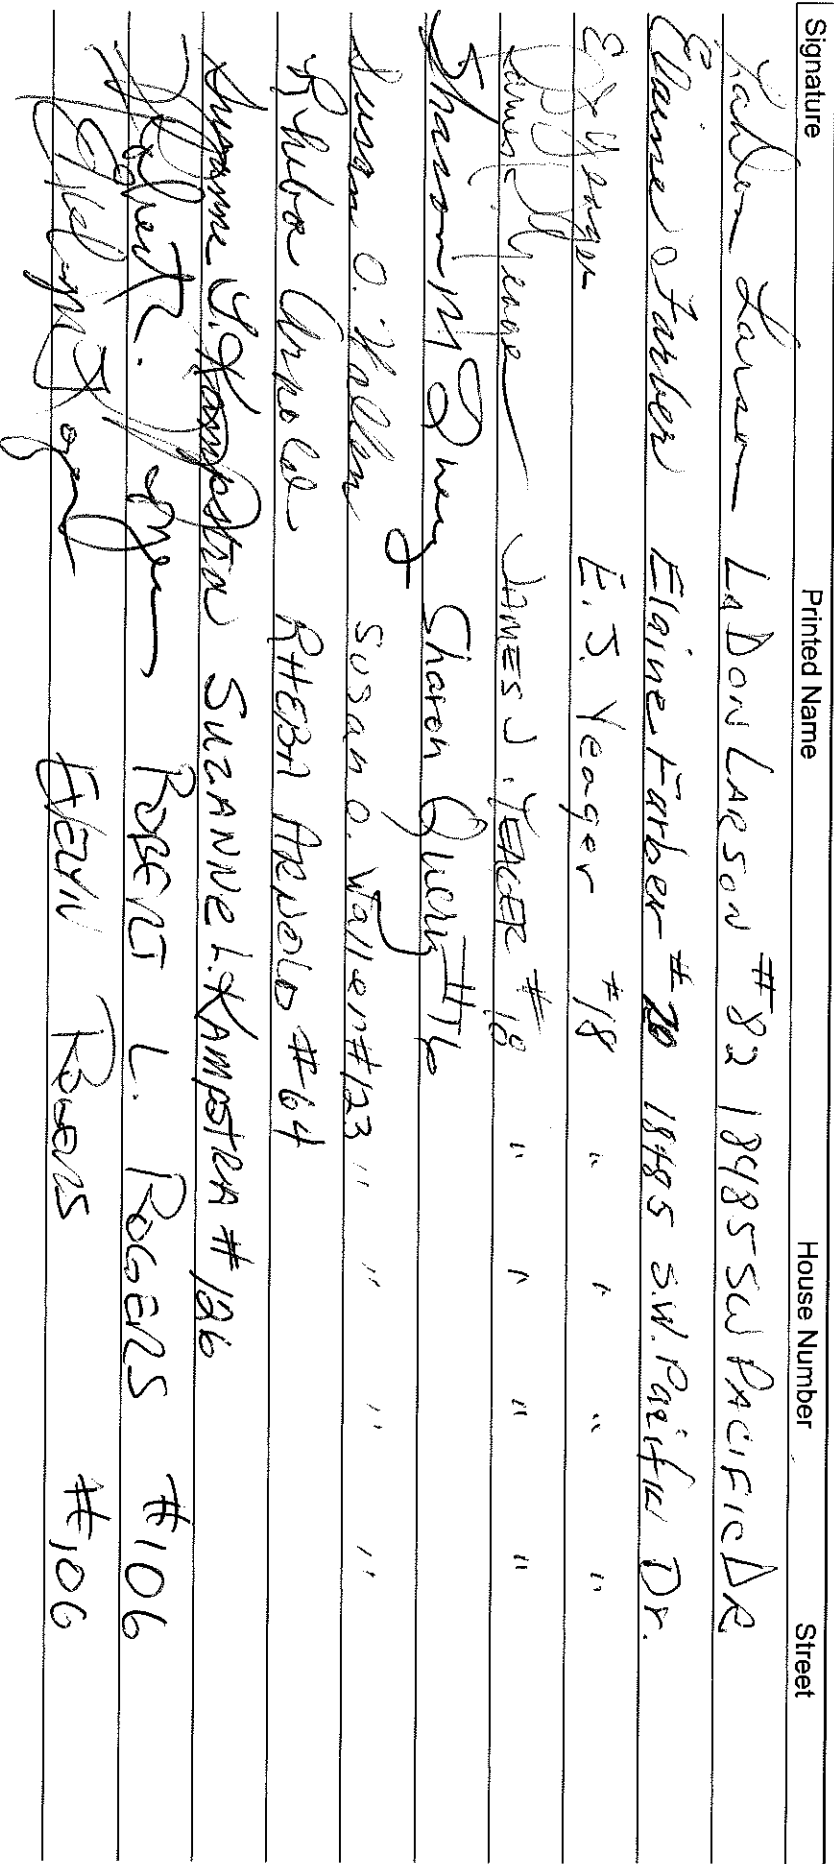 Signature Printed Name House Number Street
LaDon Larson LADON LARSON #82 18485 SW PACIFIC DR
Elaine Farber Elaine Farber #70 18485 S.W. Pacific Dr.
E J Yeager E.J. Yeager #18 " " " "
James J Yeager JAMES J. YEAGER #18 " " " "
Sharon M Query Sharon Query #76
Susan O. Wallen Susan O. Wallen #123 " " " "
Rheba Arnold RHEBA ARNOLD #64
Suzanne I. Kampstra SUZANNE I. KAMPSTRA #126
Robert L. Rogers ROBERT L. ROGERS #106
Evelyn Rogers EVELYN ROGERS #106